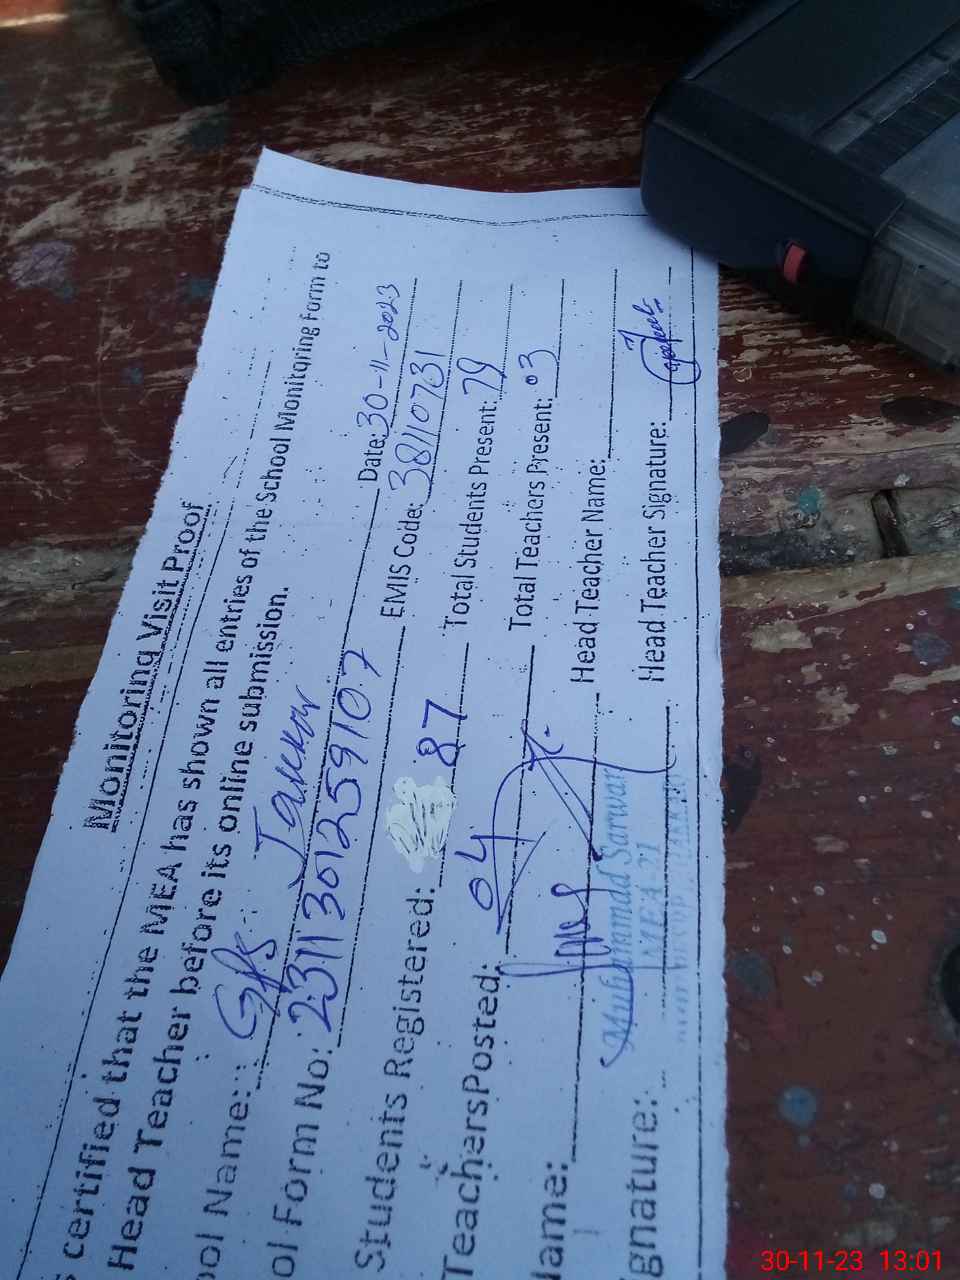 Monitoring Visit Proof
certified that the MEA has shown all entries of the School Monitoring Form to
Head Teacher before its online submission.
ool Name: GPS Date: 30-11-2023
ol Form No: 2311301259107 EMIS Code: 38110731
Students Registered: 87 Total Students Present: 79
Teachers Posted: 04 Total Teachers Present: 03
lame: Head Teacher Name:
Muhammad Sarwar
MEA-21
ignature: Head Teacher Signature:
30-11-23 13:01